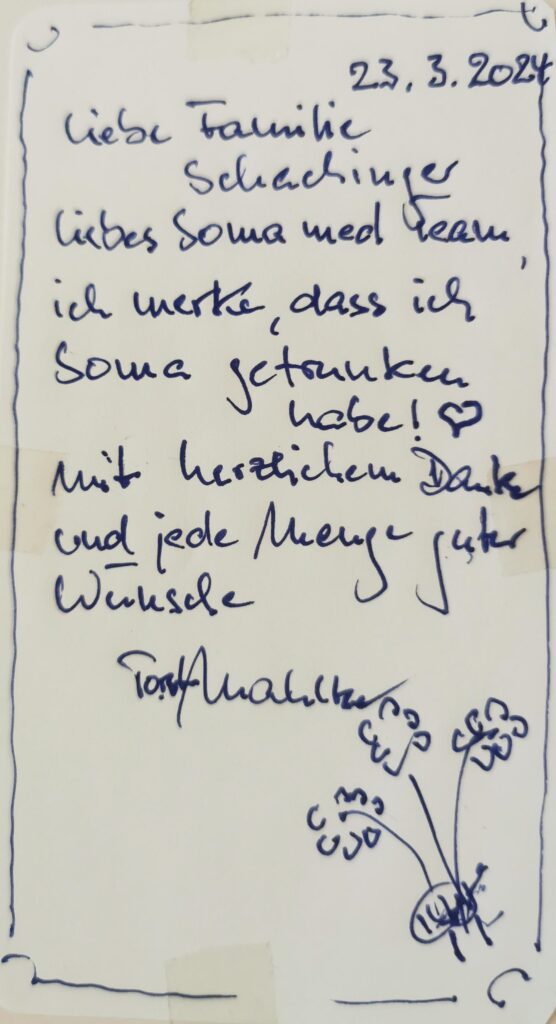 23.3.2024
Liebe Familie
Schachinger
liebes Soma med Team,
ich merke, dass ich
Soma getrunken
habe!
Mit herzlichem Dank
und jede Menge guter
Wünsche